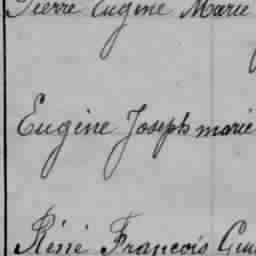 Pierre Eugène Marie
Eugène Joseph marie
Réné François